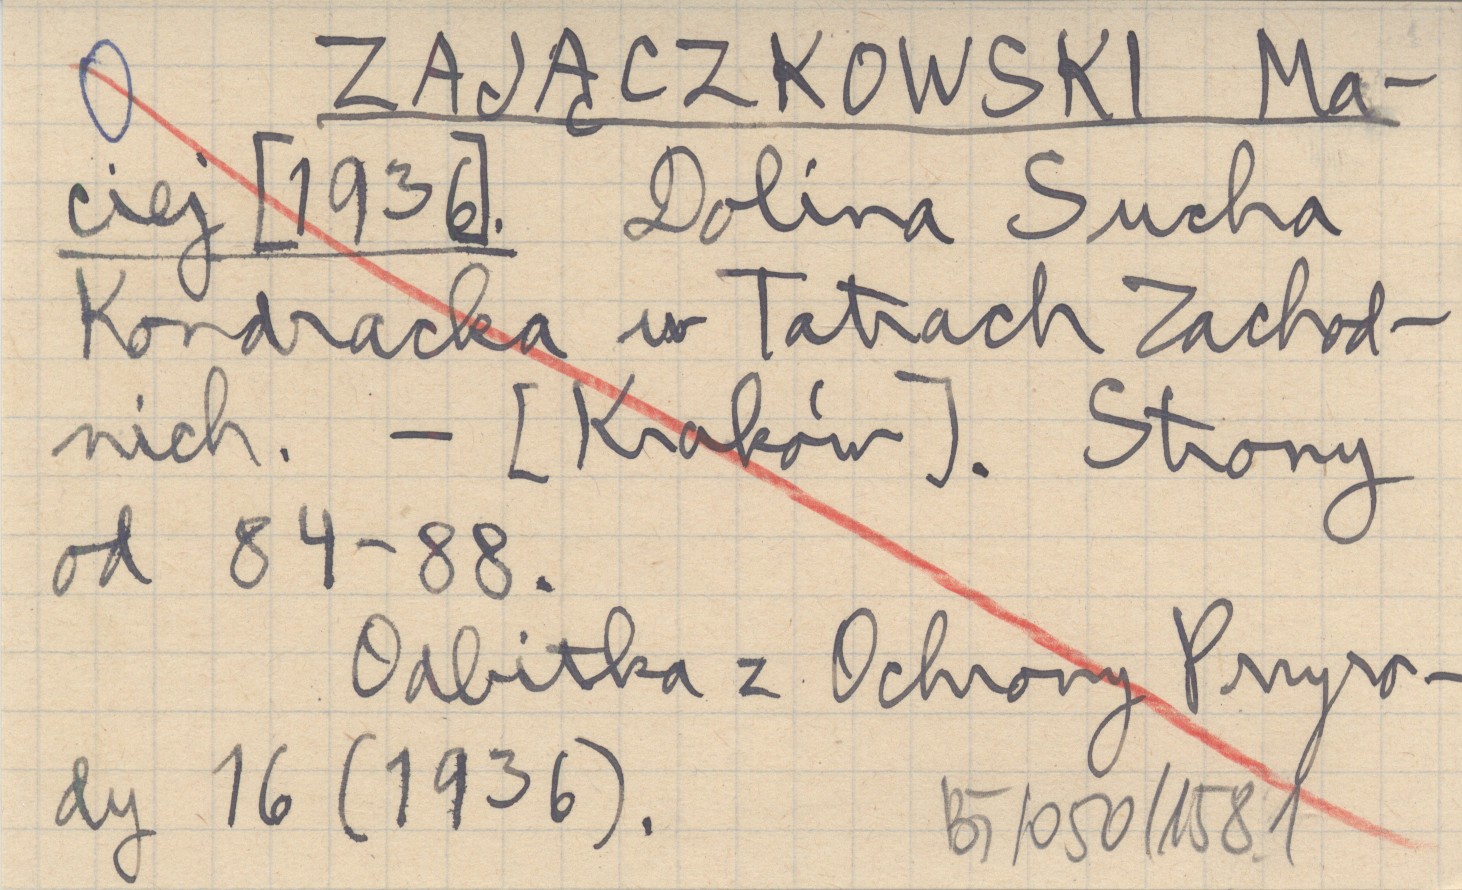 ZAJĄCZKOWSKI Ma-
ciej [1936]. Dolina Sucha
Kondracka w Tatrach Zachod-
nich. - [Kraków]. Strony
od 84-88.
Odbitka z Ochrony Przyro-
dy 16 (1936).
BT/050/1581